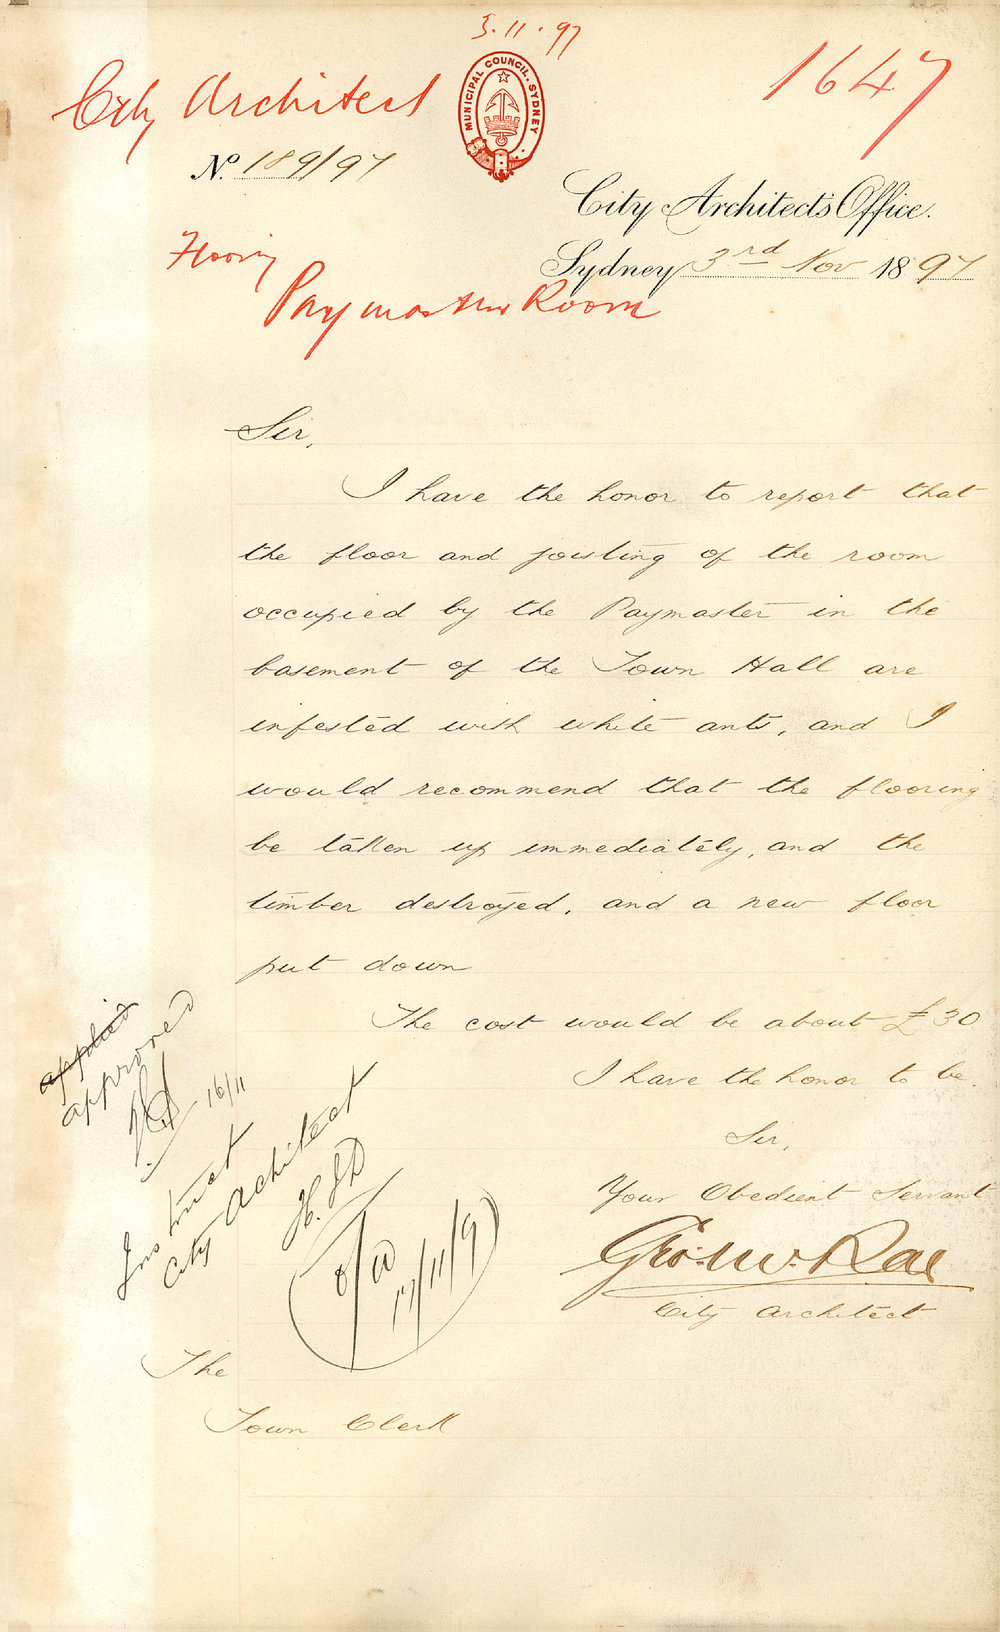 3.11.97
City Architect
MUNICIPAL COUNCIL. SYDNEY
1647
No. 189/97
City Architect's Office.
Flooring
Sydney 3rd Nov 1897
Paymasters Room
Sir,
I have the honor to report that
the floor and joisting of the room
occupied by the Paymaster in the
basement of the Town Hall are
infested with white ants, and I
would recommend that the flooring
be taken up immediately, and the
timber destroyed, and a new floor
put down
The cost would be about £30
I have the honor to be.
Sir,
Your Obedient Servant
Geo. W. Rae
City Architect
applied
approved
16/11
Instruct
City Achitect
17/11/9
The
Town Clerk